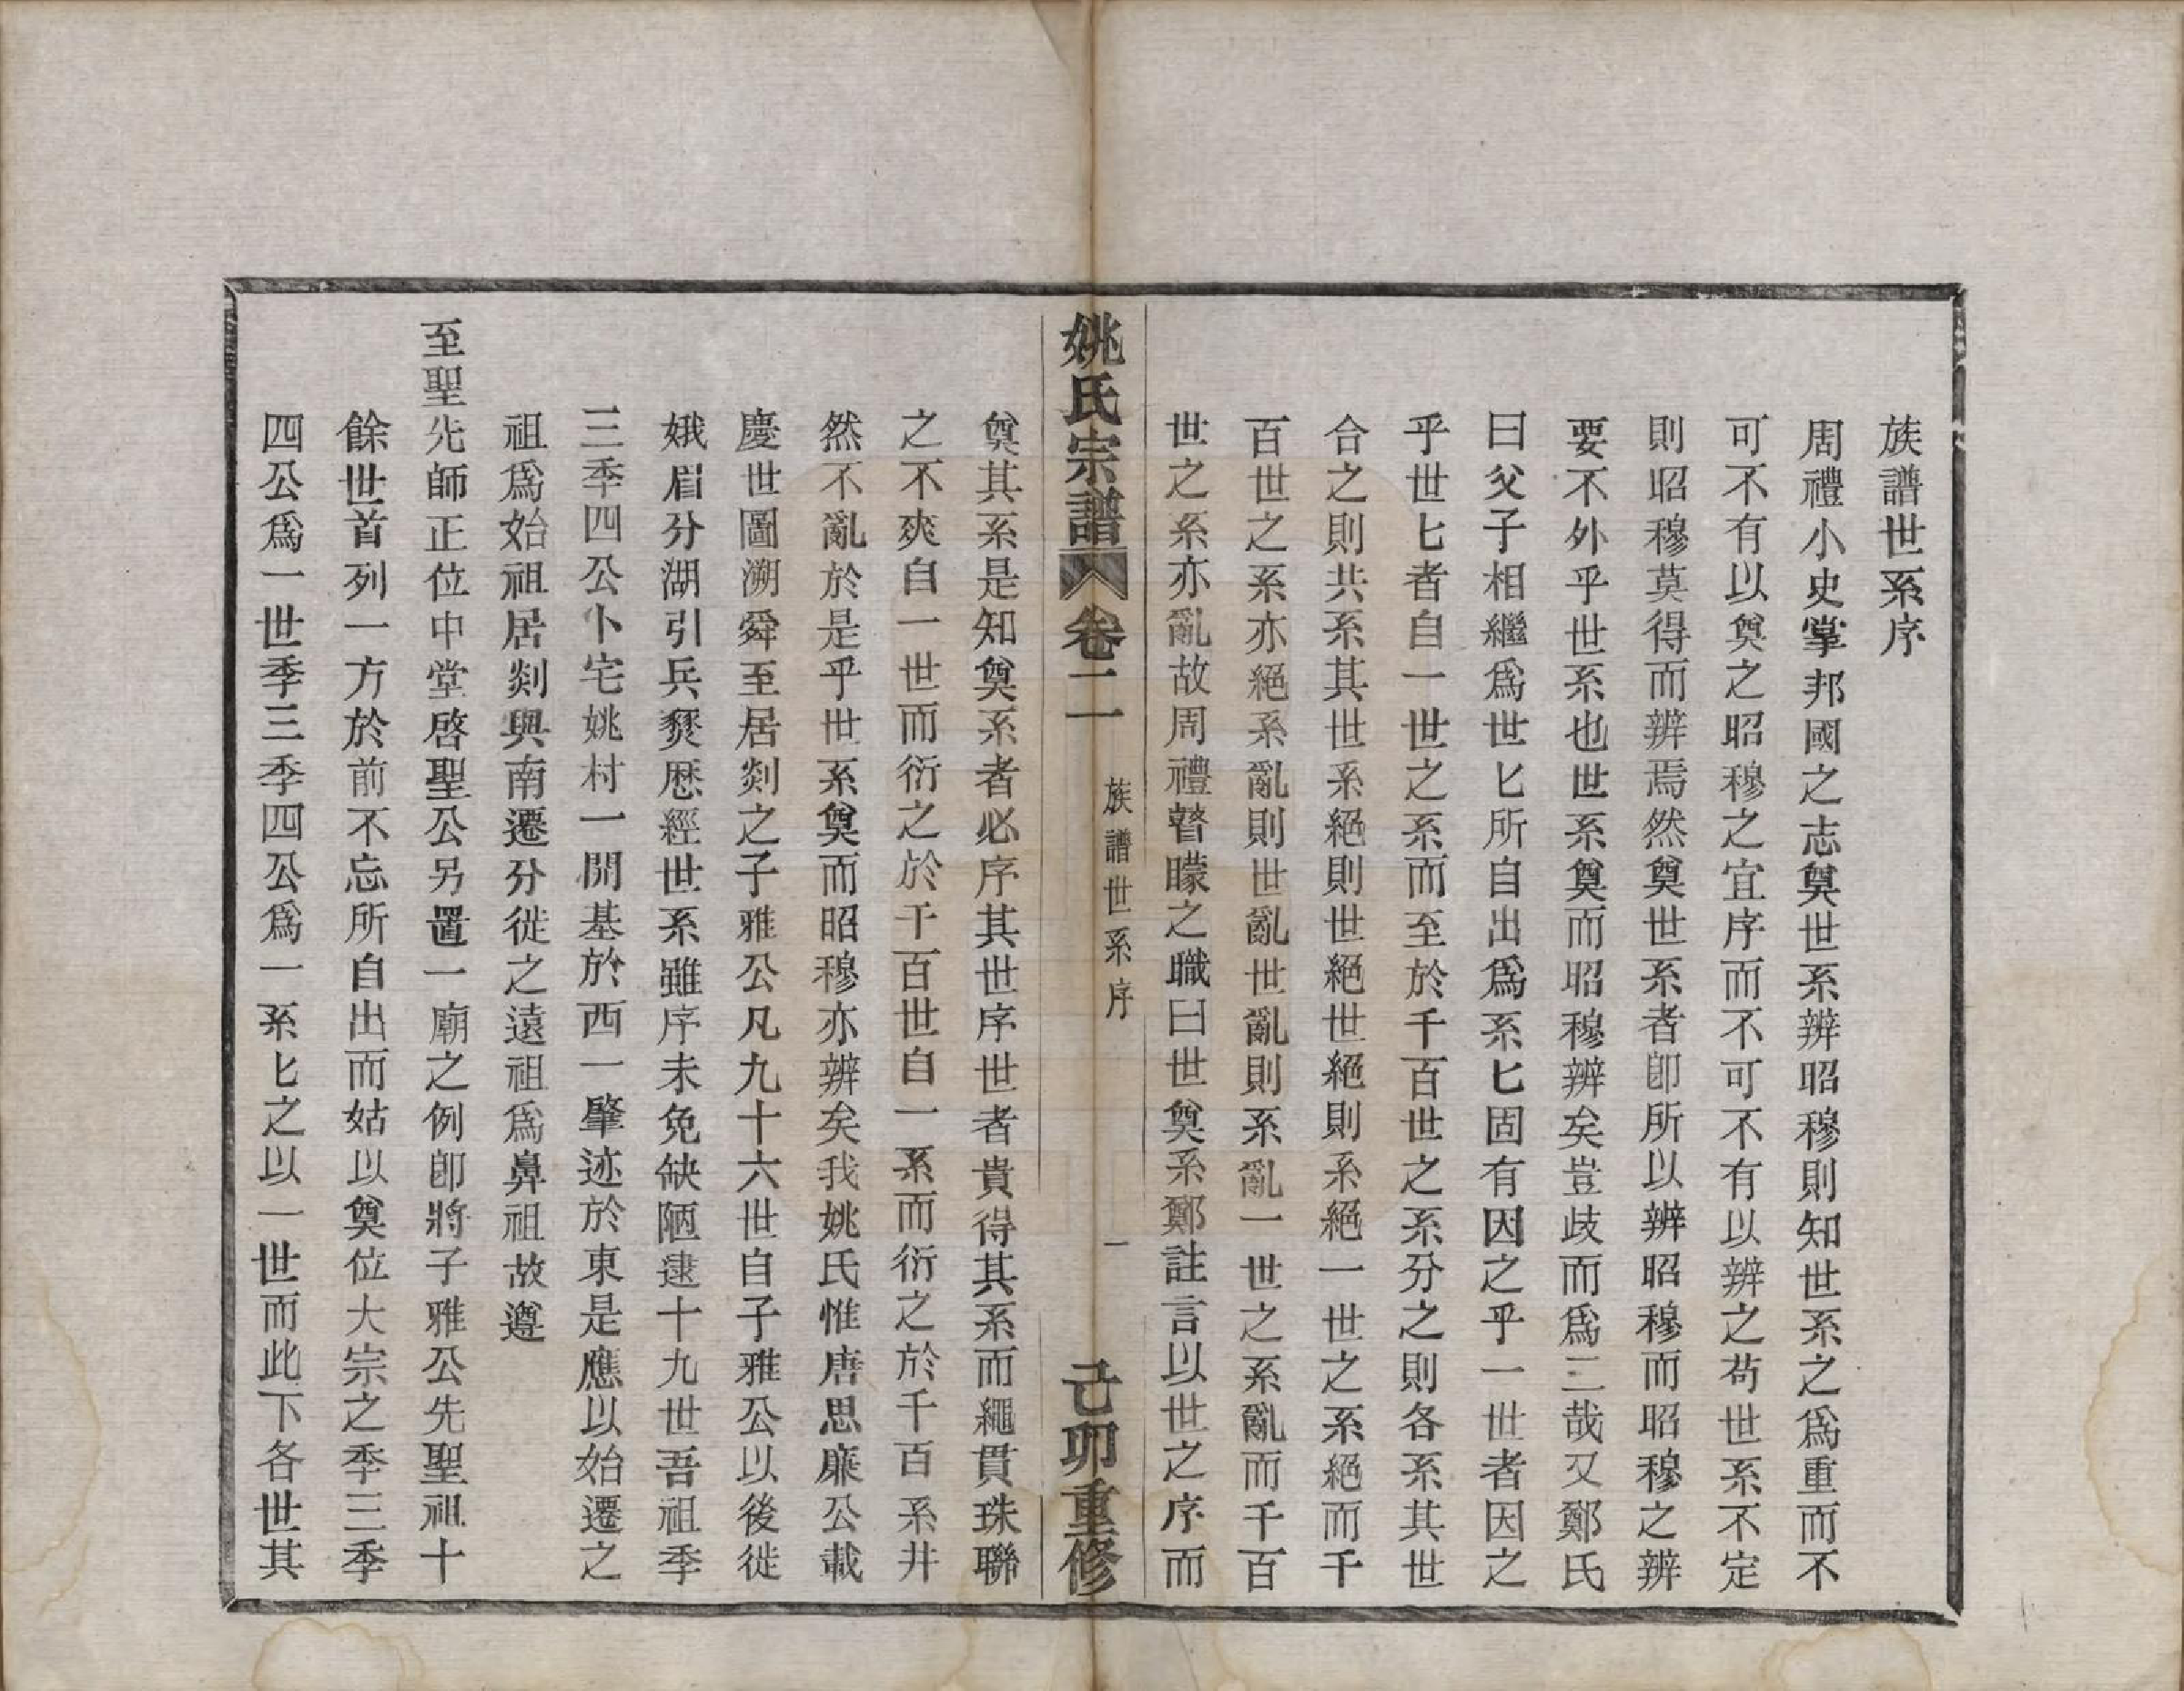 族譜世系序
周禮小史掌邦國之志奠世系辨昭穆則知世系之爲重而不
可不有以奠之昭穆之宜序而不可不有以辨之茍世系不定
則昭穆莫得而辨焉然奠世系者卽所以辨昭穆而昭穆之辨
要不外乎世系也世系奠而昭穆辨矣豈歧而爲二哉又鄭氏
曰父子相繼爲世匕所自出爲系匕固有因之乎一世者因之
乎世匕者自一世之系而至於千百世之系分之則各系其世
合之則共系其世系絕則世絕世絕則系絕一世之系絕而千
百世之系亦絕系亂則世亂世亂則系亂一世之系亂而千百
世之系亦亂故周禮瞽矇之職曰世奠系鄭註言以世之序而
姚氏宗譜 卷二 族譜世系序 一 己卯重修
奠其系是知奠系者必序其世序世者貴得其系而繩貫珠聯
之不爽自一世而衍之於千百世自一系而衍之於千百系井
然不亂於是乎世系奠而昭穆亦辨矣我姚氏惟唐思廉公載
慶世圖溯舜至居剡之子雅公凡九十六世自子雅公以後徙
娥眉分湖引兵爕厯經世系雖序未免缺陋逮十九世吾祖季
三季四公卜宅姚村一開基於西一肇迹於東是應以始遷之
祖爲始祖居剡與南遷分徙之遠祖爲鼻祖故遵
至聖先師正位中堂啓聖公另置一廟之例卽將子雅公先聖祖十
餘世首列一方於前不忘所自出而姑以奠位大宗之季三季
四公爲一世季三季四公爲一系匕之以一世而此下各世其